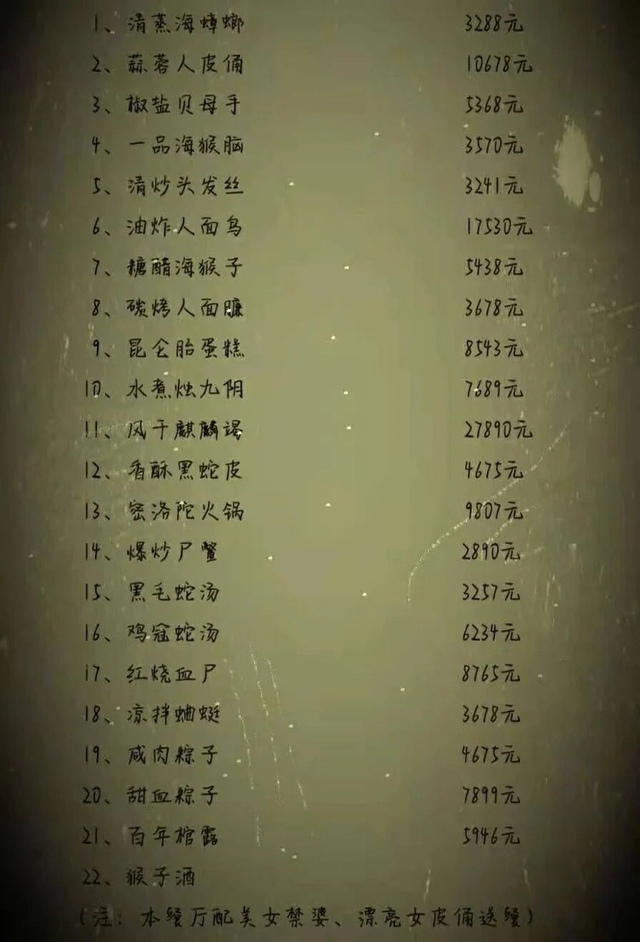 1、清蒸海蟑螂 3288元
2、蒜蓉人皮俑 10678元
3、椒盐贝母手 5368元
4、一品海猴脑 3570元
5、清炒头发丝 3241元
6、油炸人面鸟 17530元
7、糖醋海猴子 5438元
8、碳烤人面臁 3678元
9、昆仑胎蛋糕 8543元
10、水煮烛九阴 7689元
11、风干麒麟竭 27890元
12、香酥黑蛇皮 4675元
13、密洛陀火锅 9807元
14、爆炒尸鳖 2890元
15、黑毛蛇汤 3257元
16、鸡冠蛇汤 6234元
17、红烧血尸 8765元
18、凉拌蚰蜒 3678元
19、咸肉粽子 4675元
20、甜血粽子 7899元
21、百年棺露 5946元
22、猴子酒
(注：本餐厅配美女禁婆、漂亮女皮俑送餐)